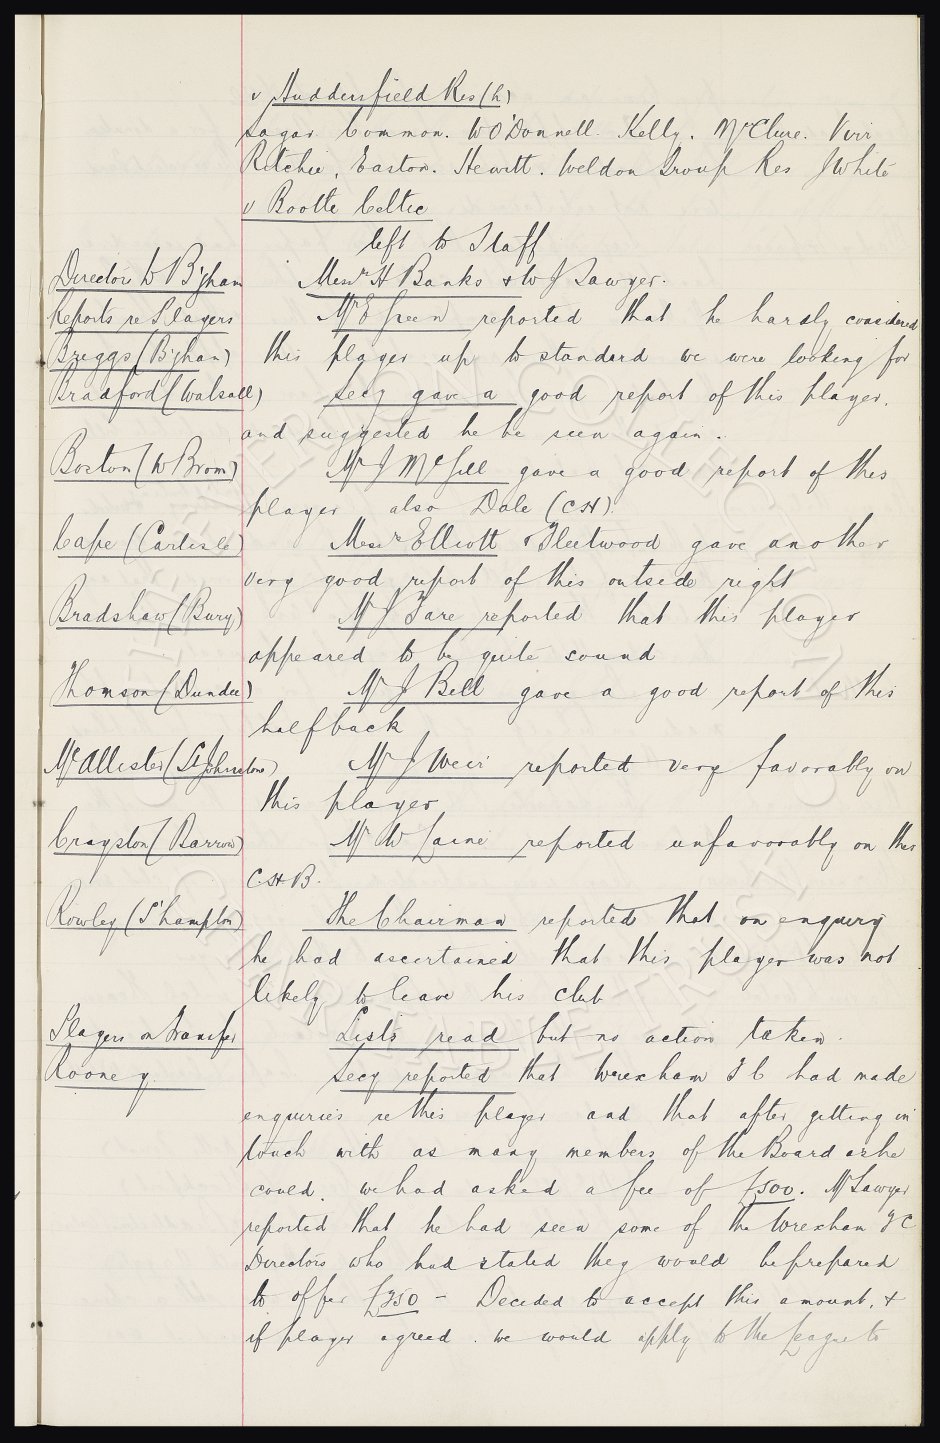 v Huddersfield Res (h)
Sagar Common. W O'Donnell. Kelly. McClure. Virr
Ritchie, Easton. Hewitt. Weldon Troup Res J White
v Bootle Celtic
left to Staff
Director to B'gham Messrs H Banks & W J Sawyer.
Reports re Players Mr E Green reported that he hardly considered
Briggs (B'ghan) this player up to standard we were looking for
Bradford (Walsall) Secy gave a good report of this player,
and suggested he be seen again.
Boston (W Brom) Mr J McGill gave a good report of this
player also Dale (CH)
Cape (Carlisle) Messrs Elliott & Fleetwood gave another
very good report of this outside right
Bradshaw (Bury) Mr J Fare reported that this player
appeared to be quite sound
Thomson (Dundee) Mr J Bell gave a good report of this
halfback
McAllister (St Johnstone) Mr J Weir reported very favorably on
this player
Crayston (Barrow) Mr W Laine reported unfavorably on this
C.H.B.
Rowley (S'hampton) The Chairman reported that on enquiry
he had ascertained that this player was not
likely to leave his club
Players on transfer Lists read but no action taken.
Rooney. Secy reported that Wrexham F C had made
enquiries re this player and that after getting in
touch with as many members of the Board as he
could, we had asked a fee of £500. Mr Sawyer
reported that he had seen some of the Wrexham F C
Directors who had stated they would be prepared
to offer £350 - Decided to accept this amount, &
if player agreed. we would apply to the League to
EVERTON COLLECTION
CHARITABLE TRUST